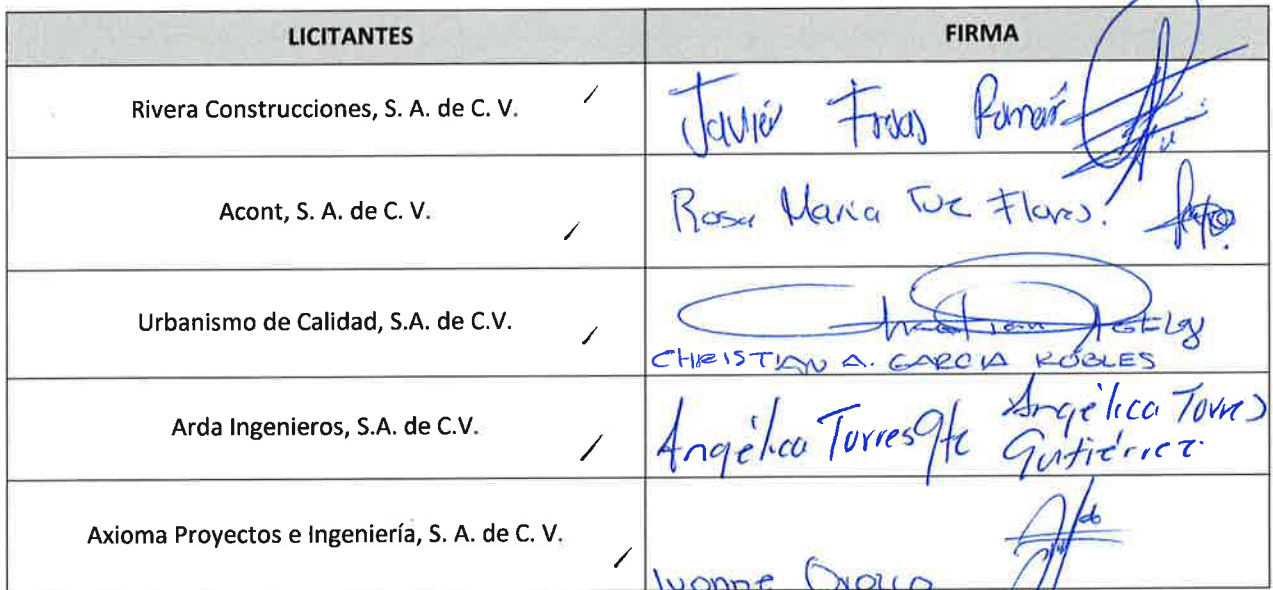 LICITANTES FIRMA
Rivera Construcciones, S. A. de C. V. Javier
Acont, S. A. de C. V. Rosa Maria Flores
Urbanismo de Calidad, S.A. de C.V.
CHRISTIAN A. GARCIA ROBLES
Arda Ingenieros, S.A. de C.V. Angélica Torres Gtz Angélica Torres
Gutiérrez
Axioma Proyectos e Ingeniería, S. A. de C. V.
Ivonne Orozco